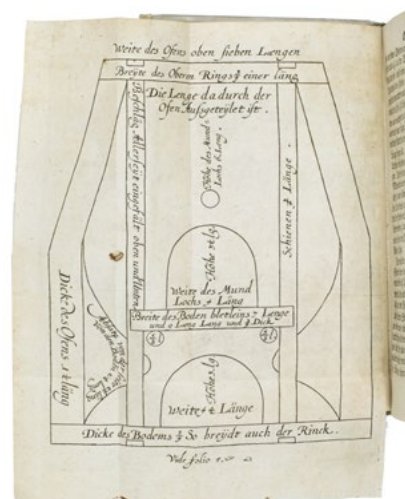 Weite des Ofens oben sieben Laengen
Breyte des Obern Rings ¾ einer läng
Die Lenge da durch der
Ofen Aufsgeteÿlet ist.
Beschläg Allerseÿt eingefält oben und Unten
Höhe des Mund
Lochs 6 Leng.
Schienen ¾ Länge.
Höhe
Weite des Mund
Lochs 4 Läng
Breite des Boden bletleins 7 Lenge
und 9 Lang Lang und Dick
Dicke des Ofens läng
Höhe
Weite 4 Länge
Dicke des Bodems So breÿdt auch der Rinck.
Vide folio